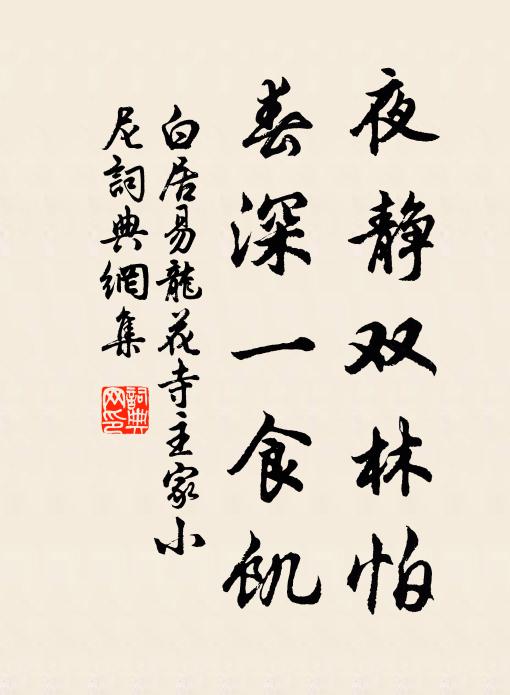 夜静双林怕
春深一食飢
白居易龍花寺主家小
尼詞典網集
詞典
网印